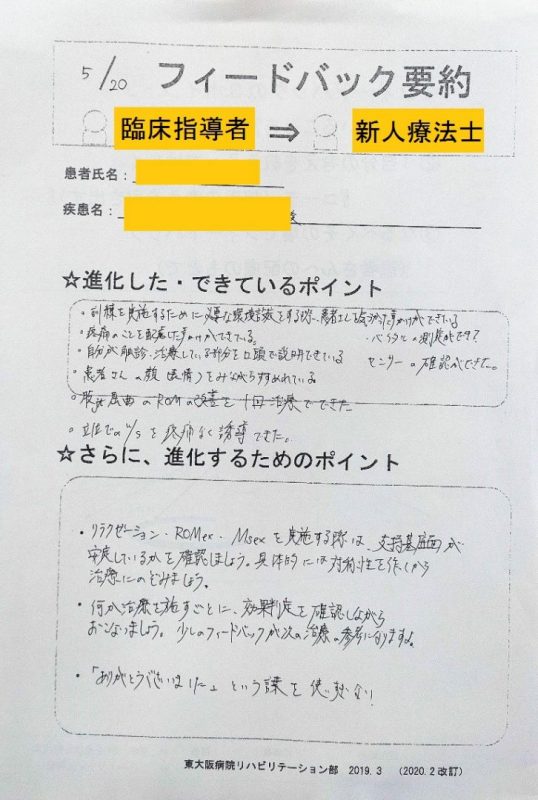 5/20 フィードバック要約
臨床指導者 ⇒ 新人療法士
患者氏名：
疾患名：
☆進化した・できているポイント
・診療を実施するために必要な環境設定をする際、患者さんを気づかった声かけができている
・疼痛のことを配慮した声かけができている。 ・バイタルの測定ができた
・自分が触診、治療している部分を口頭で説明できている センサーの確認ができた。
・患者さんの顔(表情)をみながらすすめれている
・股関節屈曲のROMの改善を1回治療でできた
・立位でのW/Sを疼痛なく誘導できた。
☆さらに、進化するためのポイント
・リラクゼーション・ROMex・Msexを実施する際は、支持基底面が
安定しているかを確認しましょう。具体的には対称性を作ってから
治療にのぞみましょう。
・何か治療を施すごとに、効果判定を確認しながら
おこないましょう。少しのフィードバックが次の治療の参考になりますよ。
・「ありがとうございました」という言葉を使い
東大阪病院リハビリテーション部 2019.3 （2020.2改訂）